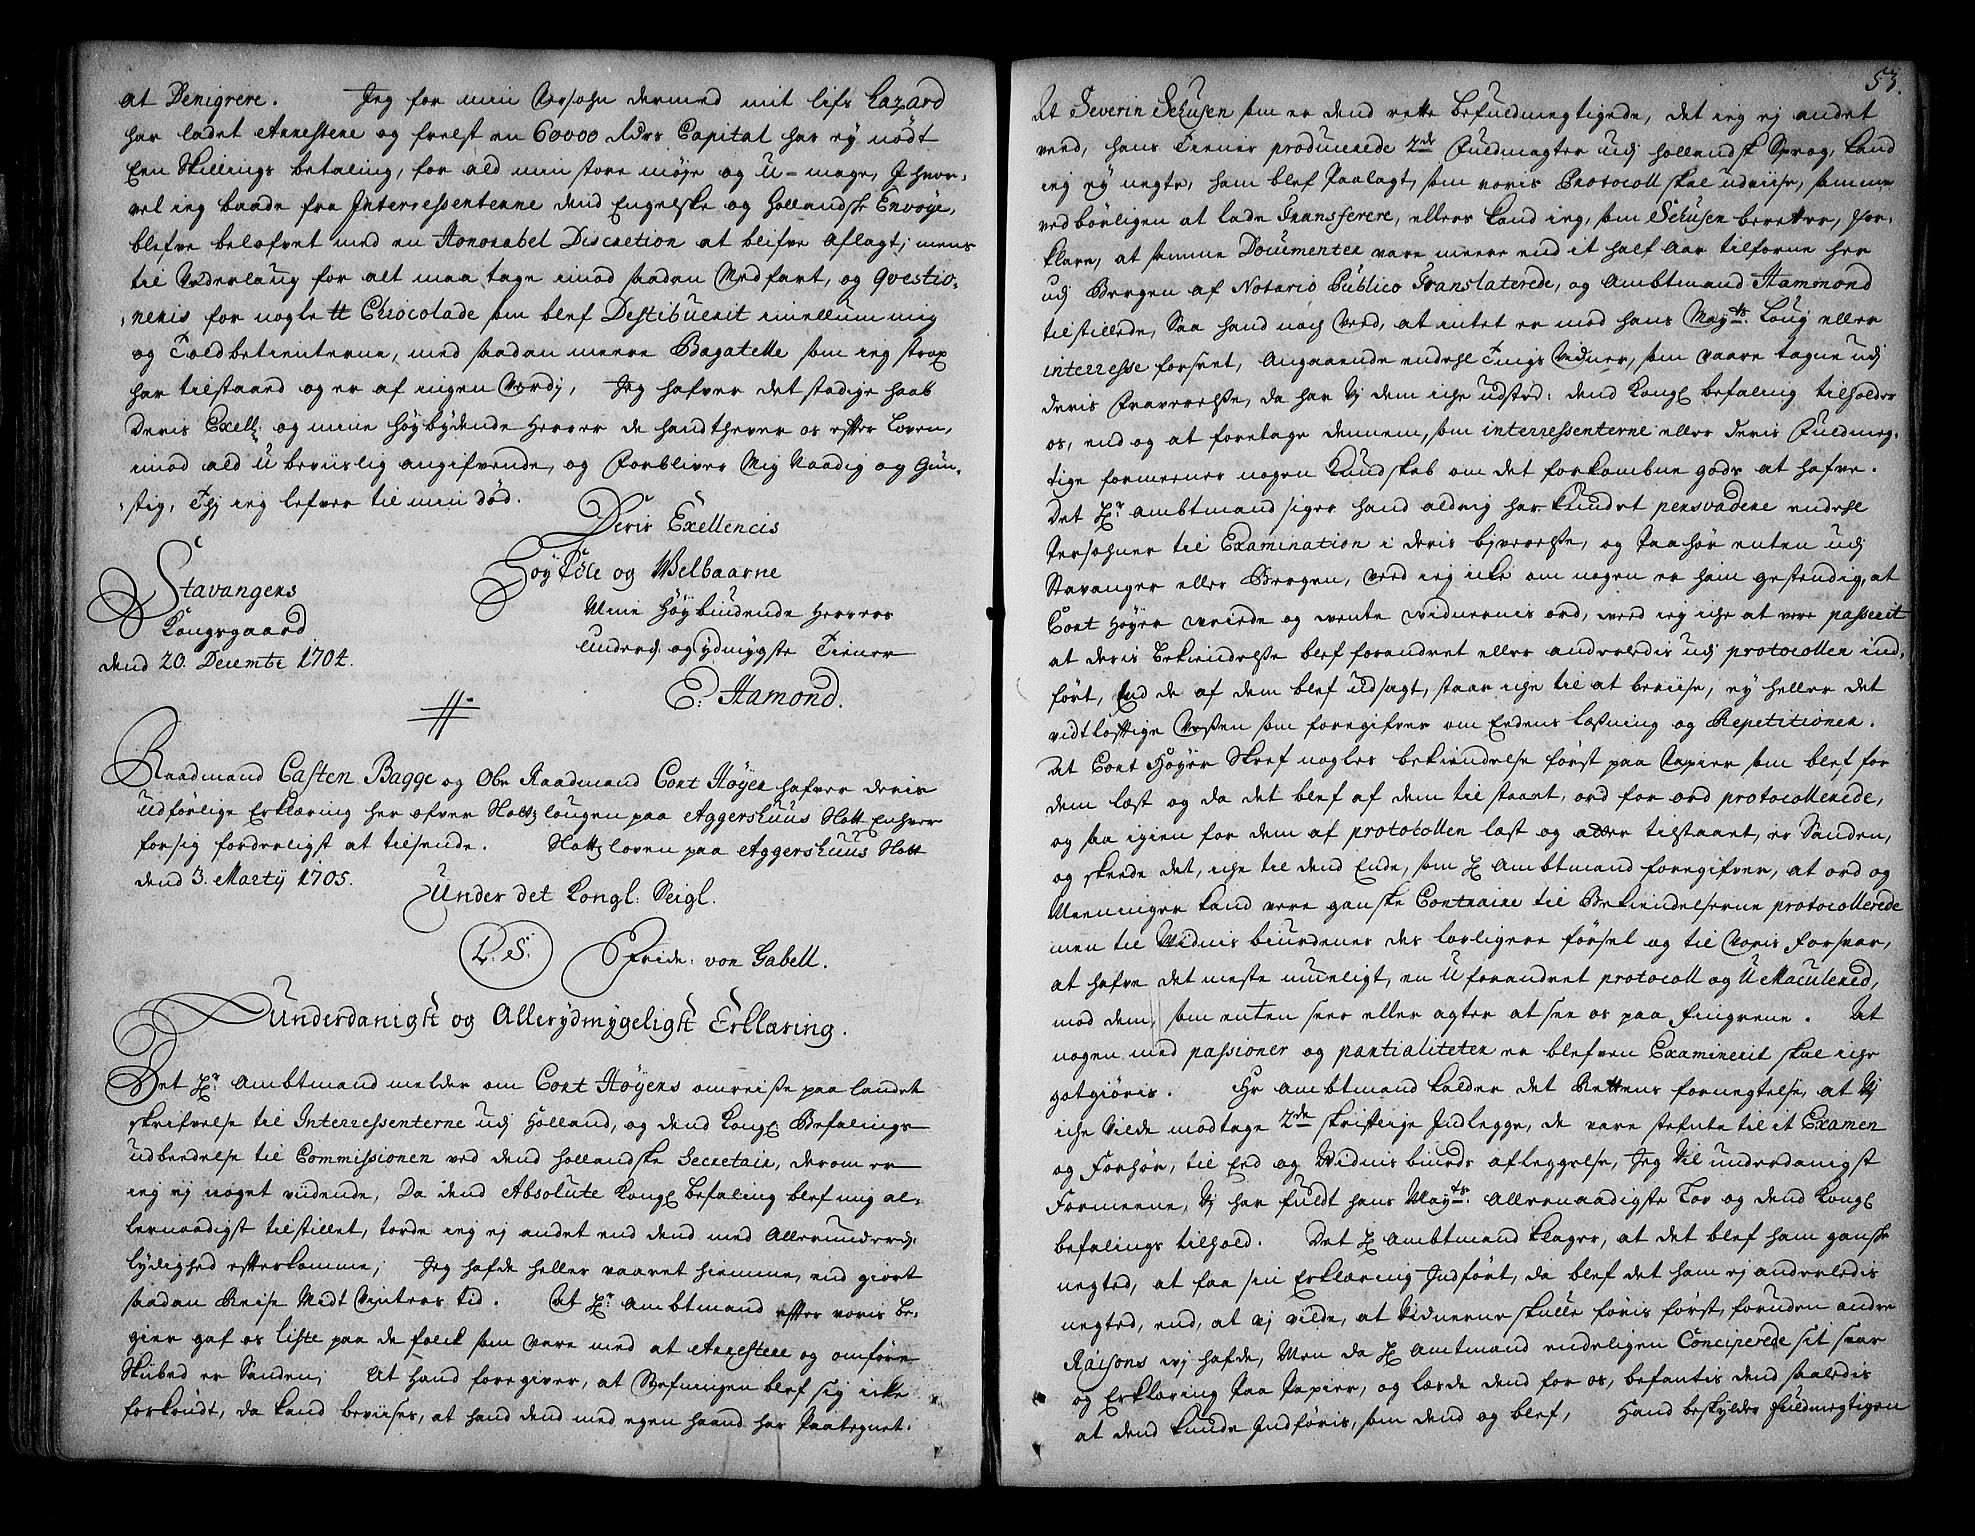 at Denigrere. Jeg for min Persohn dermed mit lifs hazard
har ladet Arrestere og frelst en 60000 Rdrs Capital har ey nødt
Een Skillings betaling, for ald min store møye og U-mage, I hvor-
vel ieg baade fra Interressenterne dend Engelske og Hollandske Envoye,
blefve belofvet med en Honorabel Discretion at blifve aflagt; mens
til Vederlaug for alt maa tage imod saadan Medfart, og Qvestio-
neris for nogle tt Chiocolade som blef Destibuerit imellum mig
og Toldbetienterne, med saadan meere Bagatelle som ieg strax
har tilstaaed og er af ingen Verdj, Jeg hafver det stadige haab
Deris Exell: og mine Høybydende Herrer de handthever os efter Loven,
imod ald Ubeviislig angifvende, og Forbliver Mig Naadig og Gun-
stig, Thj ieg lefver til min død.
Deris Exellencis
Høy Edle og Welbaarne
Mine Høybiudende Herrers
underd: og ydmygste Tiener
E: Hamond.
Stavangers
Kongsgaard
dend 20. Decembr 1704.
Raadmand Casten Bagge og Obr Raadmand Cort Høyer hafver deris
udførlige Erklæring her ofver Slottzlougen paa Aggershuus Slott Enhver
for sig forderligst at tilsende. Slottzloven paa Aggershuus Slott
dend 3. Martij 1705.
Under det Kongl: Seigl.
L. S. Fride: von Gabell.
Underdanigst og Allerydmygeligst Erklæring.
Det Hr Ambtmand melder om Cort Høyers omreise paa landet
skrifvelse til Interressenterne udj Holland, og dend Kongl Befalings
udbredelse til Commissionen ved dend hollandske Secretair, derom er
ieg ej noget viidende, Da dend Absolute Kongl befaling blef mig al-
lernaadigst tilstillet, torde ieg ej andet end dend med Allerunderd:
lydighed efterkomme; Jeg hafde heller vaaret hiemme, end giort
saadan Reise Midt Vinters tid. At Hr Ambtmand efter voris be-
giær gaf os liste paa de folck som vare med at Arrestere og omføre
Skibed er Sanden; At hand foregiver, at Besetningen blef sig icke
forkyndt, da kand bevises, at hand dend med egen haand har Paategnet.
53.
At Severin Sehusen som er dend rette befuldmegtigede, det ieg ej andet
veed, hans Tiener producerede 2de Fuldmagter udj hollandsk Sprog, kand
ieg ey negte, ham blef Paalagt, som voris Protocoll skal udviise, samme
vedbørligen at lade Transferere, ellers kand ieg, som Sehusen beretter, for-
klare, at samme Documenter vare meere end it half Aar tilforne her
udj Bergen af Notario Publico Translaterede, og Ambtmand Hammond
tilstillede, Saa hand noch veed, at intet er mod hans Mayts: Loug eller
interresse forseet, Angaaende endehl Tings Vidner, som vaare tagne udj
deris Fraverelse, da har Vj dem iche udsted: dend Kongl befaling tilholder
os, end og at foretage dennem, som interressenterne eller deris Fuldmeg-
tige formeener nogen Kundskab om det forkombne gods at hafve.
Det Hr Ambtmand siger hand aldrig har kundet persvadere endehl
Persohner til Examination i deris byverelse, og Paahør enten udj
Stavanger eller Bergen, veed ieg icke om nogen er ham gestendig, at
Cort Høyer vreide og vente vidnernis ord, veed ieg iche at vere passerit
at deris bekiendelse blef forandret eller anderledis udj protocollen ind-
ført, End de af dem blef udsagt, staar iche til at beviise, ey heller det
vidtløftige Væsen som foregifves om Eedens læsning og Repetitioner.
At Cort Høyer Skref nogles bekiendelse først paa Papier som blef for
dem læst og da det blef af dem til staaet, ord for ord protocollerede,
og saa igien for dem af protocollen læst og atter tilstaaet, er Sanden,
og skeede det, iche til dend Ende, som Hr Ambtmand foregifver, at ord og
Meeninger kand vere ganske Contraire til Bekiendelserne protocollerede
men til Vidnisbiurdenes des lovligere førsel og til Voris forsvar,
at hafve det meste mueligt, en Uforandret protocoll og UMaculered,
mod dem, som enten seer eller agter at see os paa fingrene. At
nogen med passioner og partialiteter er blefven Examinerit skal iche
gotgiøris. Hr Ambtmand kalder det Rettens fornegtelse, at Vj
iche Vilde modtage 2de skriftlige Indlegge, de vare stefnte til it Examen
og Forhør, til Eed og Vidnisbiurds afleggelse, Jeg Vil underdanigst
Formeene, Vj har fuldt hans Mayts: Allernaadigste Lov og dend Kongl
befalings tilhold. Det Hr Ambtmand klager, at det blef ham ganske
negted, at faa sin Erklæring Indført, da blef det ham ej anderledis
negted, end, at vj vilde, at Vidnerne skulle føris først, foruden andre
Raisons vj hafde, Men da Hr Amtmand endeligen Conciperede sit svar
og Erklæring Paa Papier, og læsde dend for os, befantis dend saaledis
at dend kunde Indføris, som dend og blef, Hand beskylder fuldmegtigen